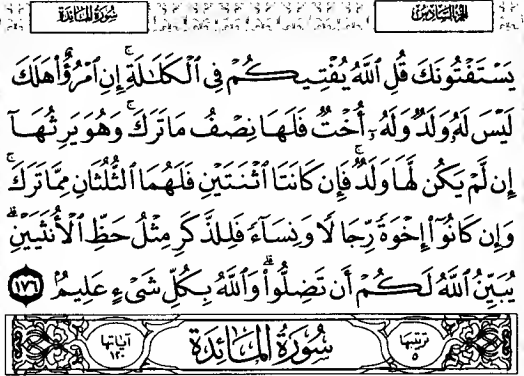 الجزء السادس
سورة المائدة
يَسْتَفْتُونَكَ قُلِ اللَّهُ يُفْتِيكُمْ فِي الْكَلَٰلَةِ ۚ إِنِ امْرُؤٌا هَلَكَ
لَيْسَ لَهُۥ وَلَدٌ وَلَهُۥٓ أُخْتٌ فَلَهَا نِصْفُ مَا تَرَكَ ۚ وَهُوَ يَرِثُهَآ
إِن لَّمْ يَكُن لَّهَا وَلَدٌ ۚ فَإِن كَانَتَا اثْنَتَيْنِ فَلَهُمَا الثُّلُثَانِ مِمَّا تَرَكَ ۚ
وَإِن كَانُوٓا إِخْوَةً رِّجَالًا وَنِسَآءً فَلِلذَّكَرِ مِثْلُ حَظِّ الْأُنثَيَيْنِ ۗ
يُبَيِّنُ اللَّهُ لَكُمْ أَن تَضِلُّوا ۗ وَاللَّهُ بِكُلِّ شَيْءٍ عَلِيمٌ ١٧٦
ترتيبها ٥
سورة المائدة
آياتها ١٢٠